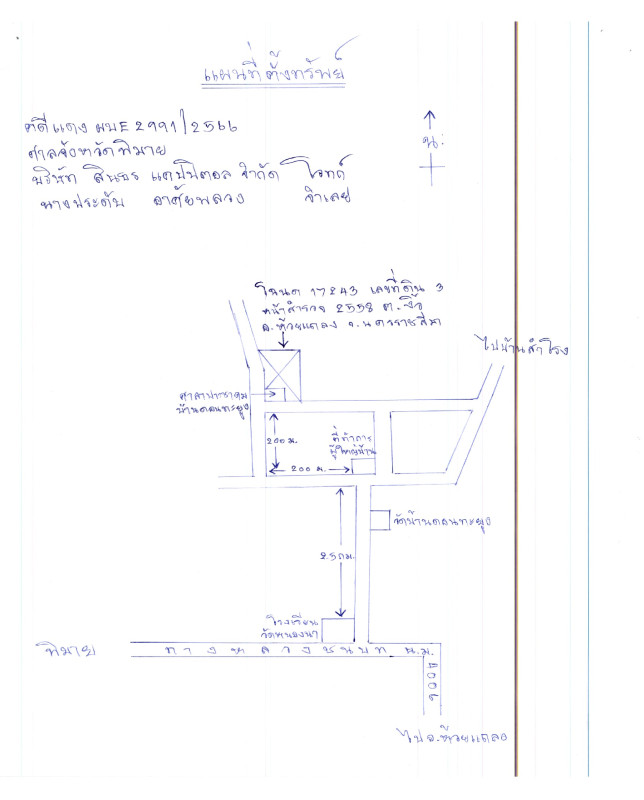 แผนที่ตั้งทรัพย์
คดีแดง ผบE2991/2566
ศาลจังหวัดพิมาย
บริษัท สินธร แคปปิตอล จำกัด โจทก์
นางประดับ อาศัยพลวง จำเลย
น.
โฉนด 17243 เลขที่ดิน 3
หน้าสำรวจ 2558 ต.งิ้ว
อ.ห้วยแถลง จ.นครราชสีมา
ไปบ้านสำโรง
ศาลาประชาคม
บ้านดอนทะยุง
200 ม.
ที่ทำการ
ผู้ใหญ่บ้าน
200 ม.
วัดบ้านดอนทะยุง
2.5 กม.
โรงเรียน
วัดหนองนา
พิมาย
ทางหลวงชนบท น.ม.
ไปอ.ห้วยแถลง